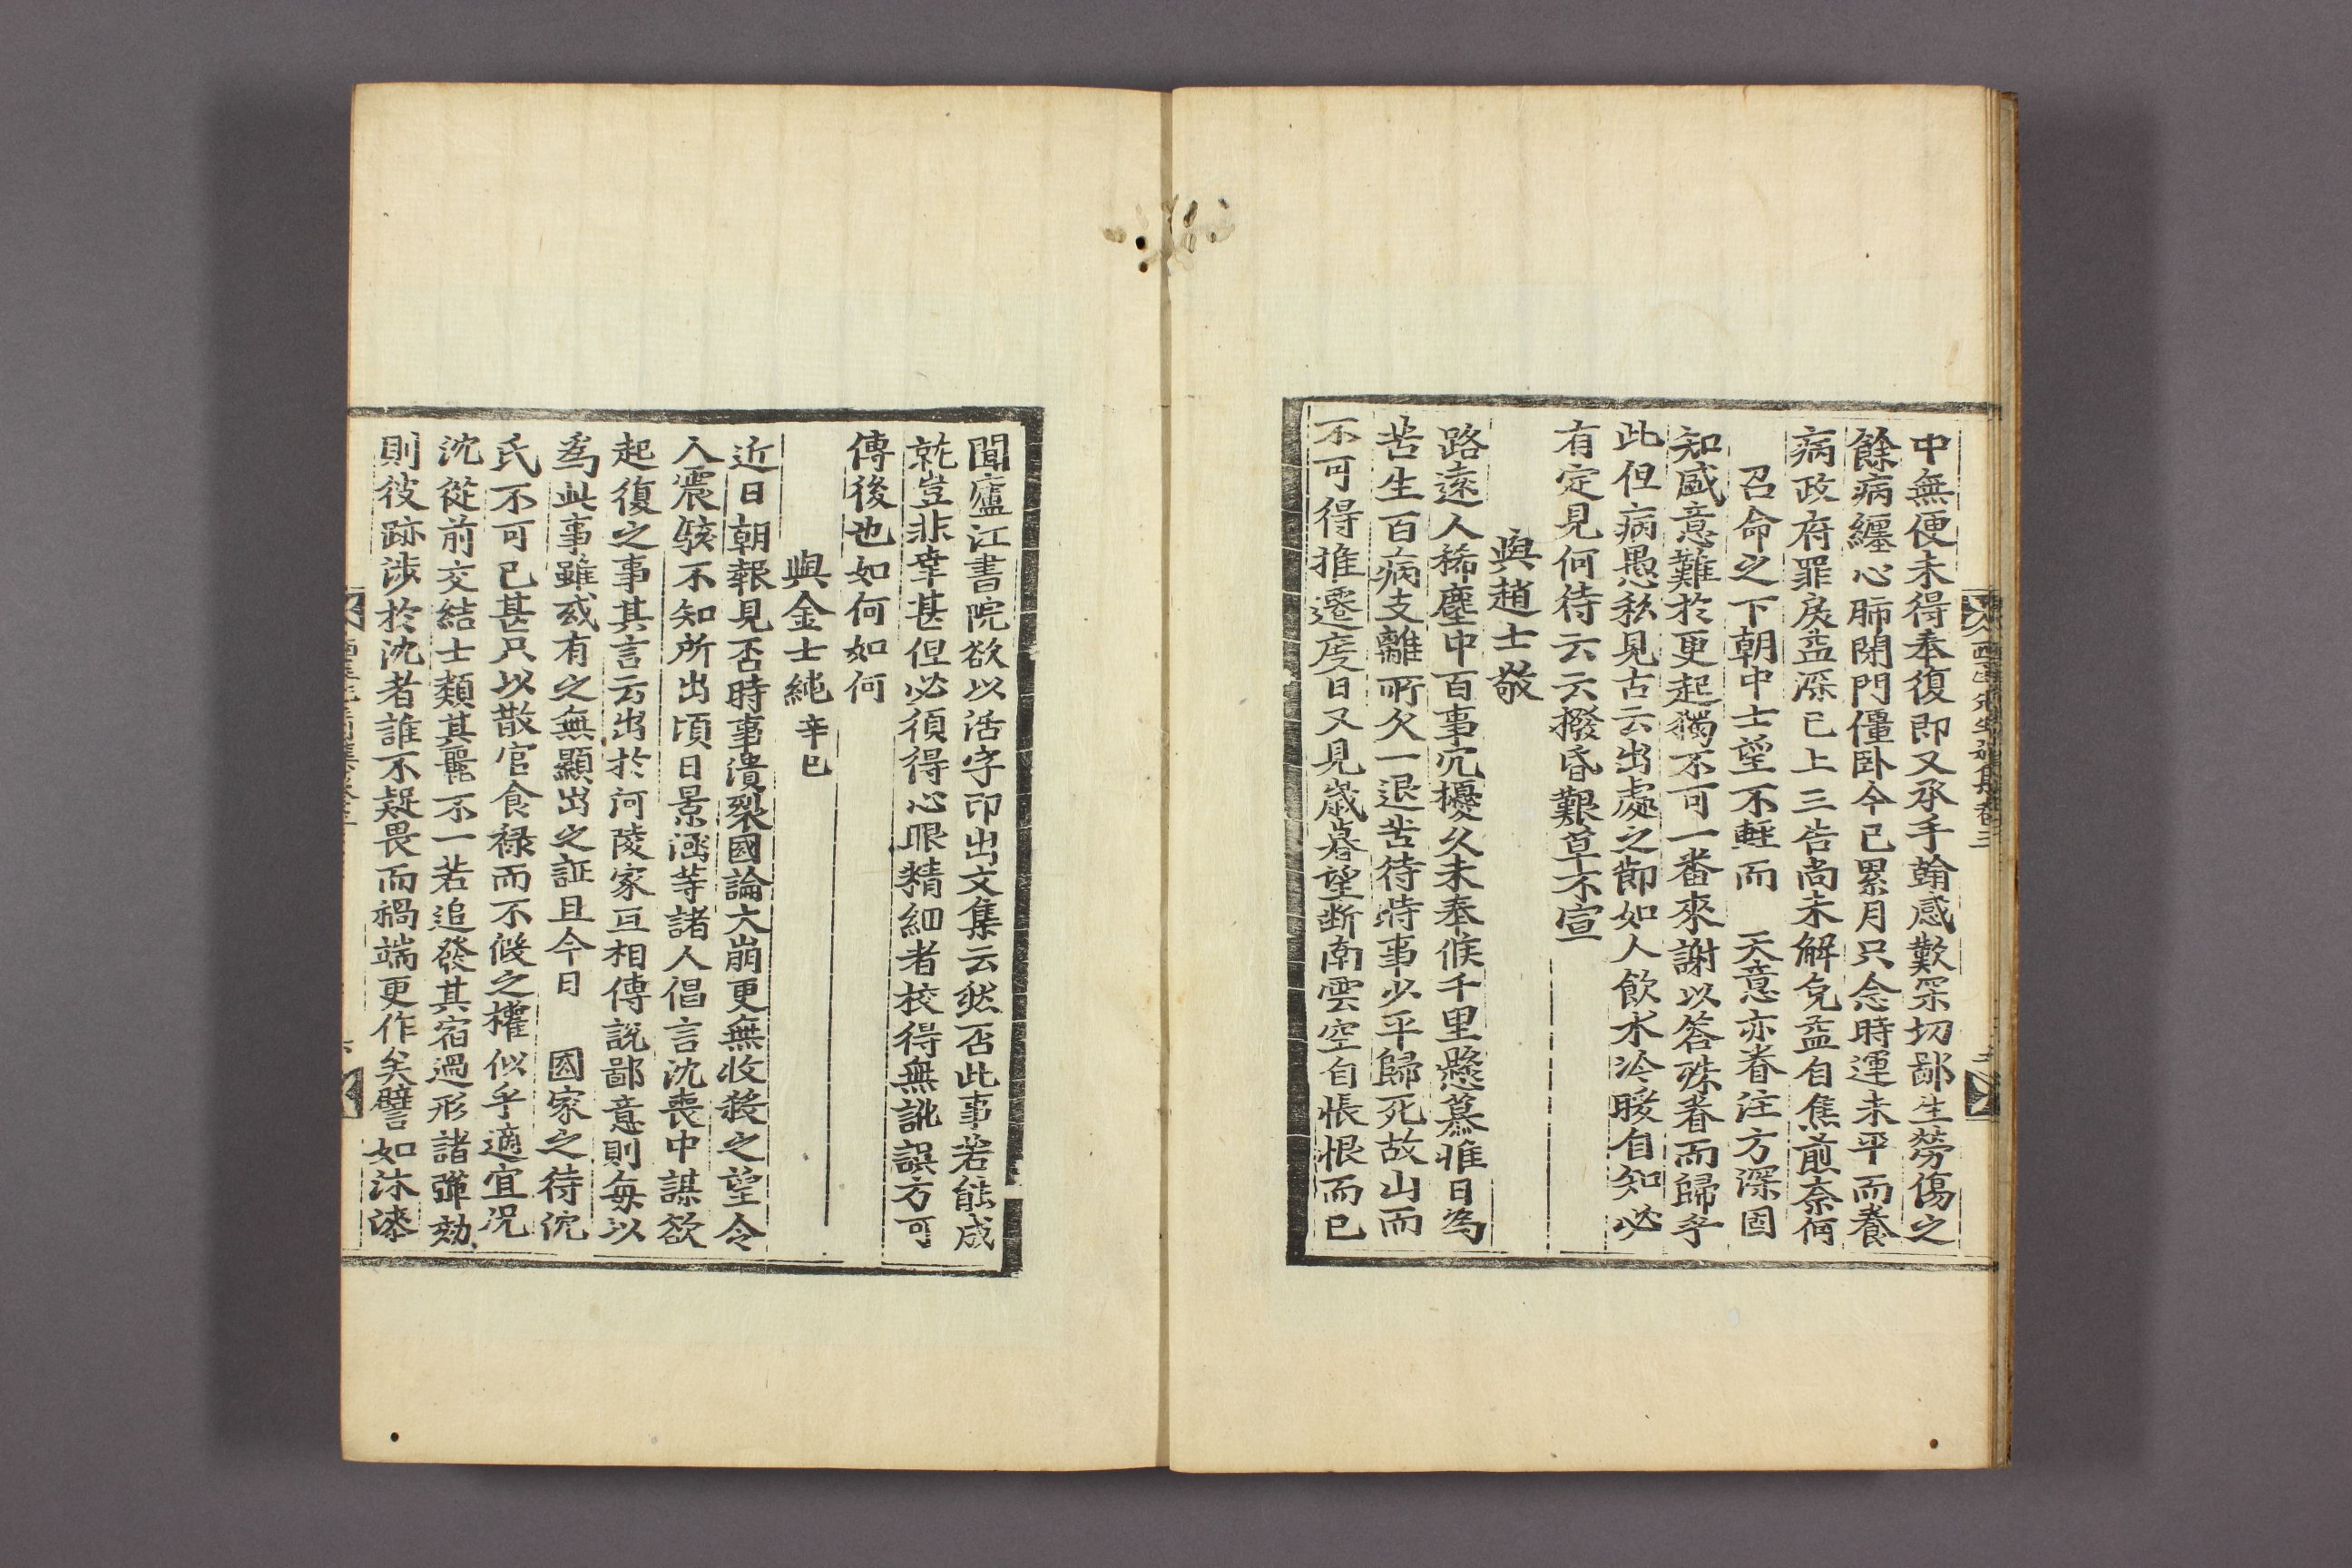 中無便未得奉復即又承手翰感歎深切鄙生勞傷之
餘病纏心肺閉門僵卧今已累月只念時運未平而養
病政府罪戾益深已上三告尚未解免益自焦煎奈何
召命之下朝中士望不輕而 天意亦眷注方深固
知盛意難於更起獨不可一番來謝以答殊眷而歸乎
此但病愚私見古云出處之節如人飮水冷暖自知必
有定見何待云云撥昏艱草不宣
與趙士敬
路遠人稀塵中百事宂擾久未奉候千里懸慕惟日爲
苦生百病支離所欠一退苦待時事少平歸死故山而
不可得推遷度今日又見歲暮望斷南雲空自悵恨而已
聞廬江書院欲以活字印出文集云然否此事若能成
就豈非幸甚但必須得心眼精細者校得無訛誤方可
傳後也如何如何
與金士純 辛巳
近日朝報見否時事潰裂國論大崩更無收殺之望令
人震駭不知所出頃日景涵等諸人倡言沈喪中謀欲
起復之事其言云出於河陵家亘相傳說鄙意則每以
爲此事雖或有之無顯出之証且今日 國家之待沈
氏不可已甚只以散官食禄而不假之權似乎適宜况
沈從前交結士類其麗不一若追發其宿過形諸彈劾
則彼跡涉於沈者誰不疑畏而禍端更作矣譬如沐漆